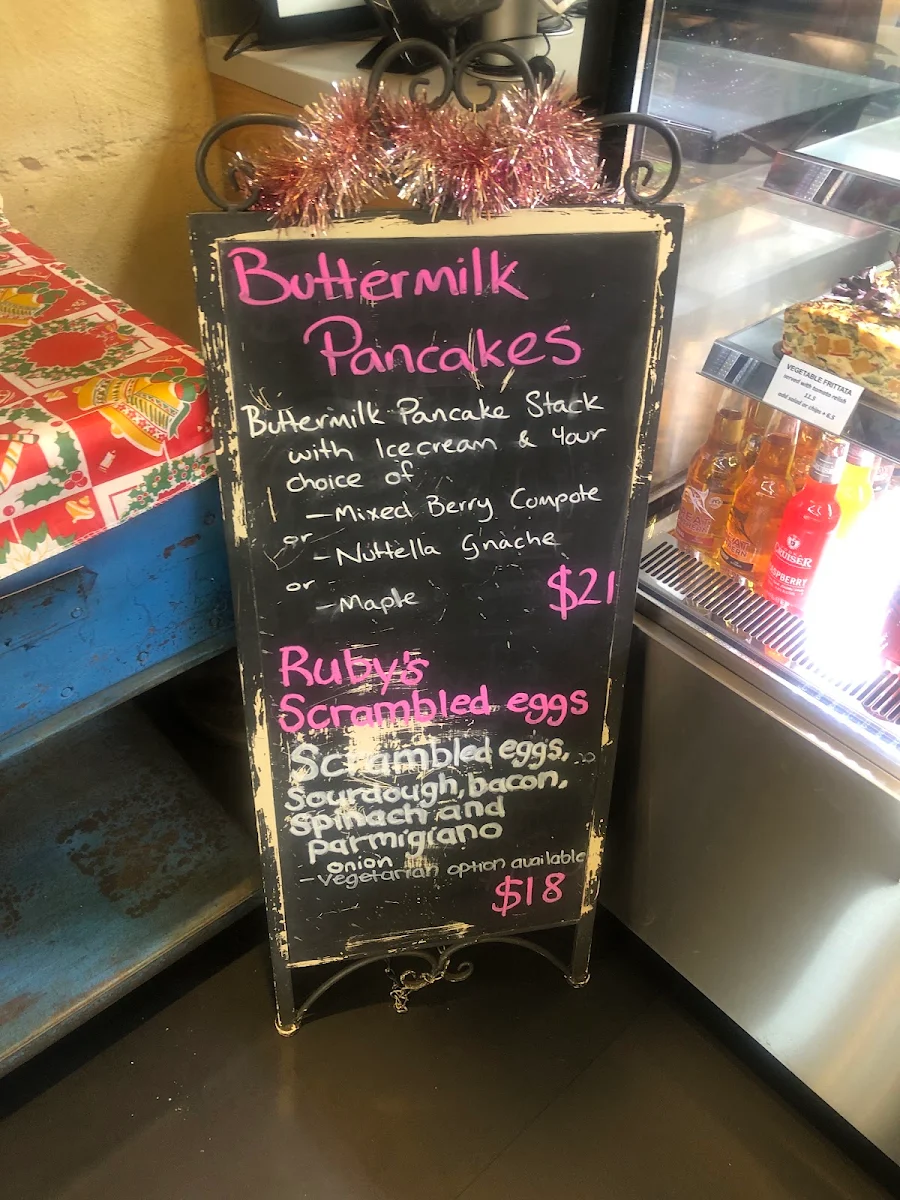 Buttermilk
Pancakes
Buttermilk Pancake Stack
with Icecream & Your
choice of
- Mixed Berry Compote
or
- Nuttella Gnache
or
- Maple
$21
Ruby's
Scrambled eggs
Scrambled eggs,
Sourdough, bacon,
Spinach and
parmigiano
onion
- Vegetarian option available
$18
VEGETABLE FRITTATA
served with tomato relish
12.5
add salad or chips + 6.5
CRUISER
RASPBERRY